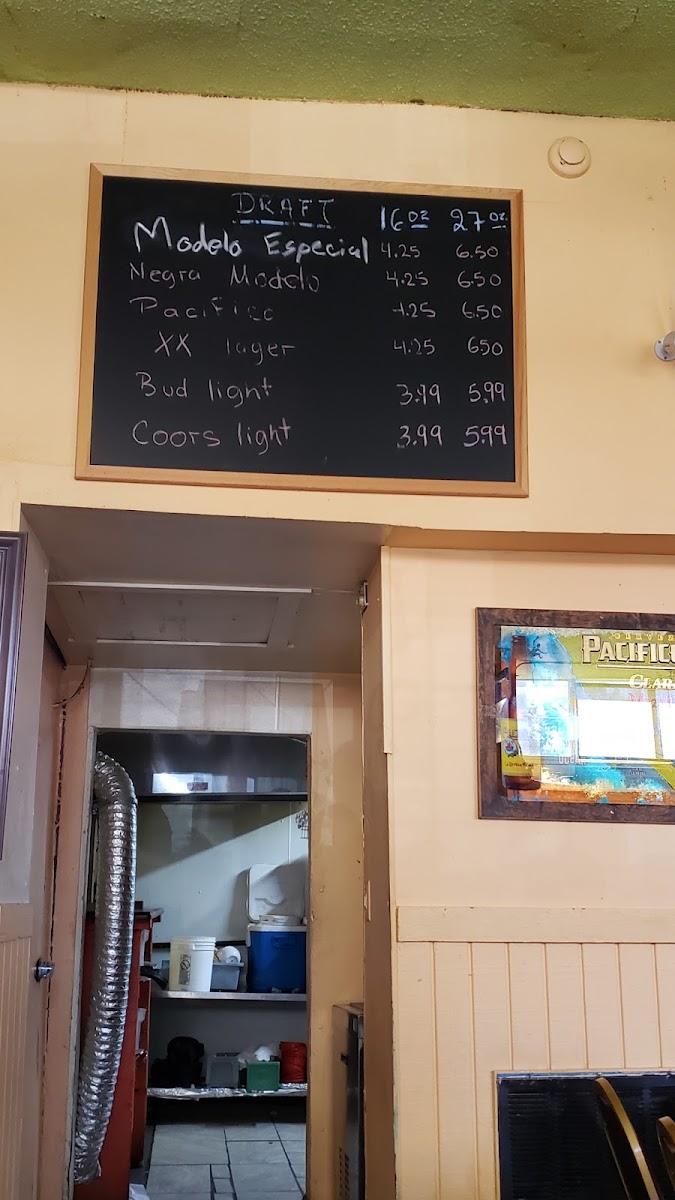 DRAFT 16 oz 27 oz.
Modelo Especial 4.25 6.50
Negra Modelo 4.25 6.50
Pacifico 4.25 6.50
XX lager 4.25 650
Bud light 3.99 5.99
Coors light 3.99 5.99
PACIFICO